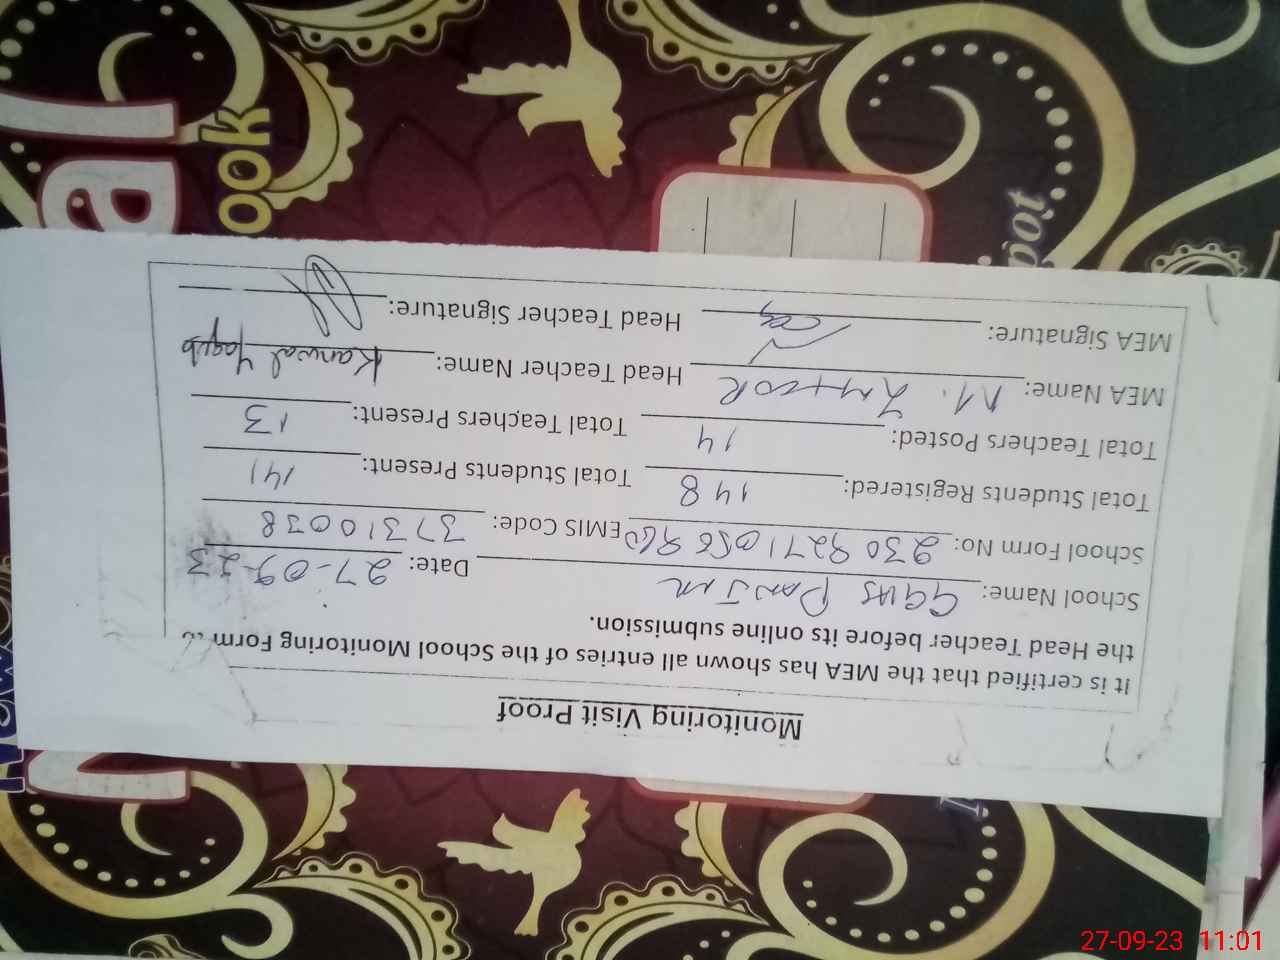 Monitoring Visit Proof
It is certified that the MEA has shown all entries of the School Monitoring Form to
the Head Teacher before its online submission.
School Name: GGHS Date: 27-09-23
School Form No: EMIS Code: 37310038
Total Students Registered: 148 Total Students Present: 141
Total Teachers Posted: 14 Total Teachers Present: 13
MEA Name: M. Head Teacher Name: Kanwal Yaqub
MEA Signature: Head Teacher Signature:
ook
27-09-23 11:01